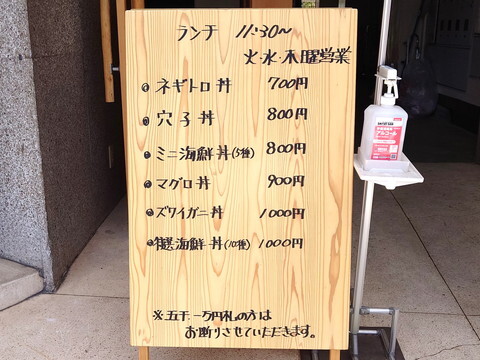 ランチ 11:30～
火・水・木曜営業
ネギトロ丼 700円
穴子丼 800円
ミニ海鮮丼(5種) 800円
マグロ丼 900円
ズワイガニ丼 1000円
海鮮丼(10種) 1000円
※五千 一万円札の方は
お断りさせていただきます。
アルコール